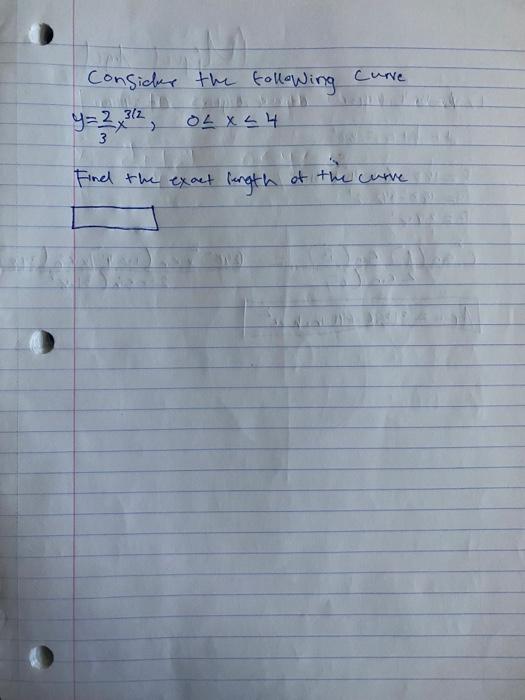 Consider the following curve
y = 2/3 x^3/2, 0 ≤ x ≤ 4
Find the exact length of the curve